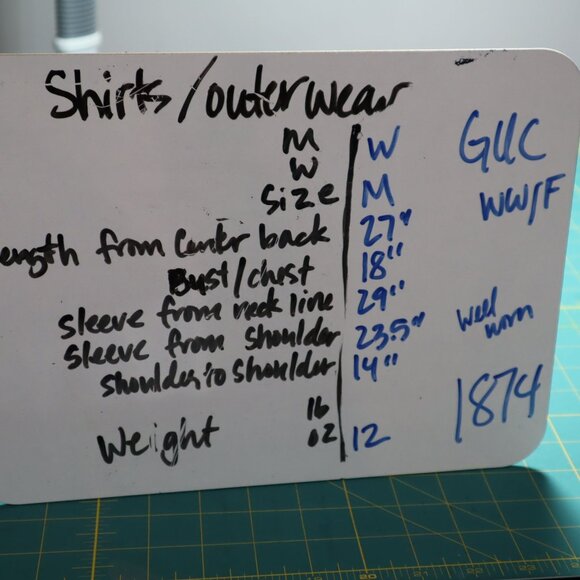 Shirts/outerwear
M
W W GUC
Size M WW/F
ength from Center back 27"
Bust/chest 18"
sleeve from neck line 29"
sleeve from shoulder 23.5" well worn
shoulder to shoulder 14"
lb 1874
Weight oz 12
20
21
22
23